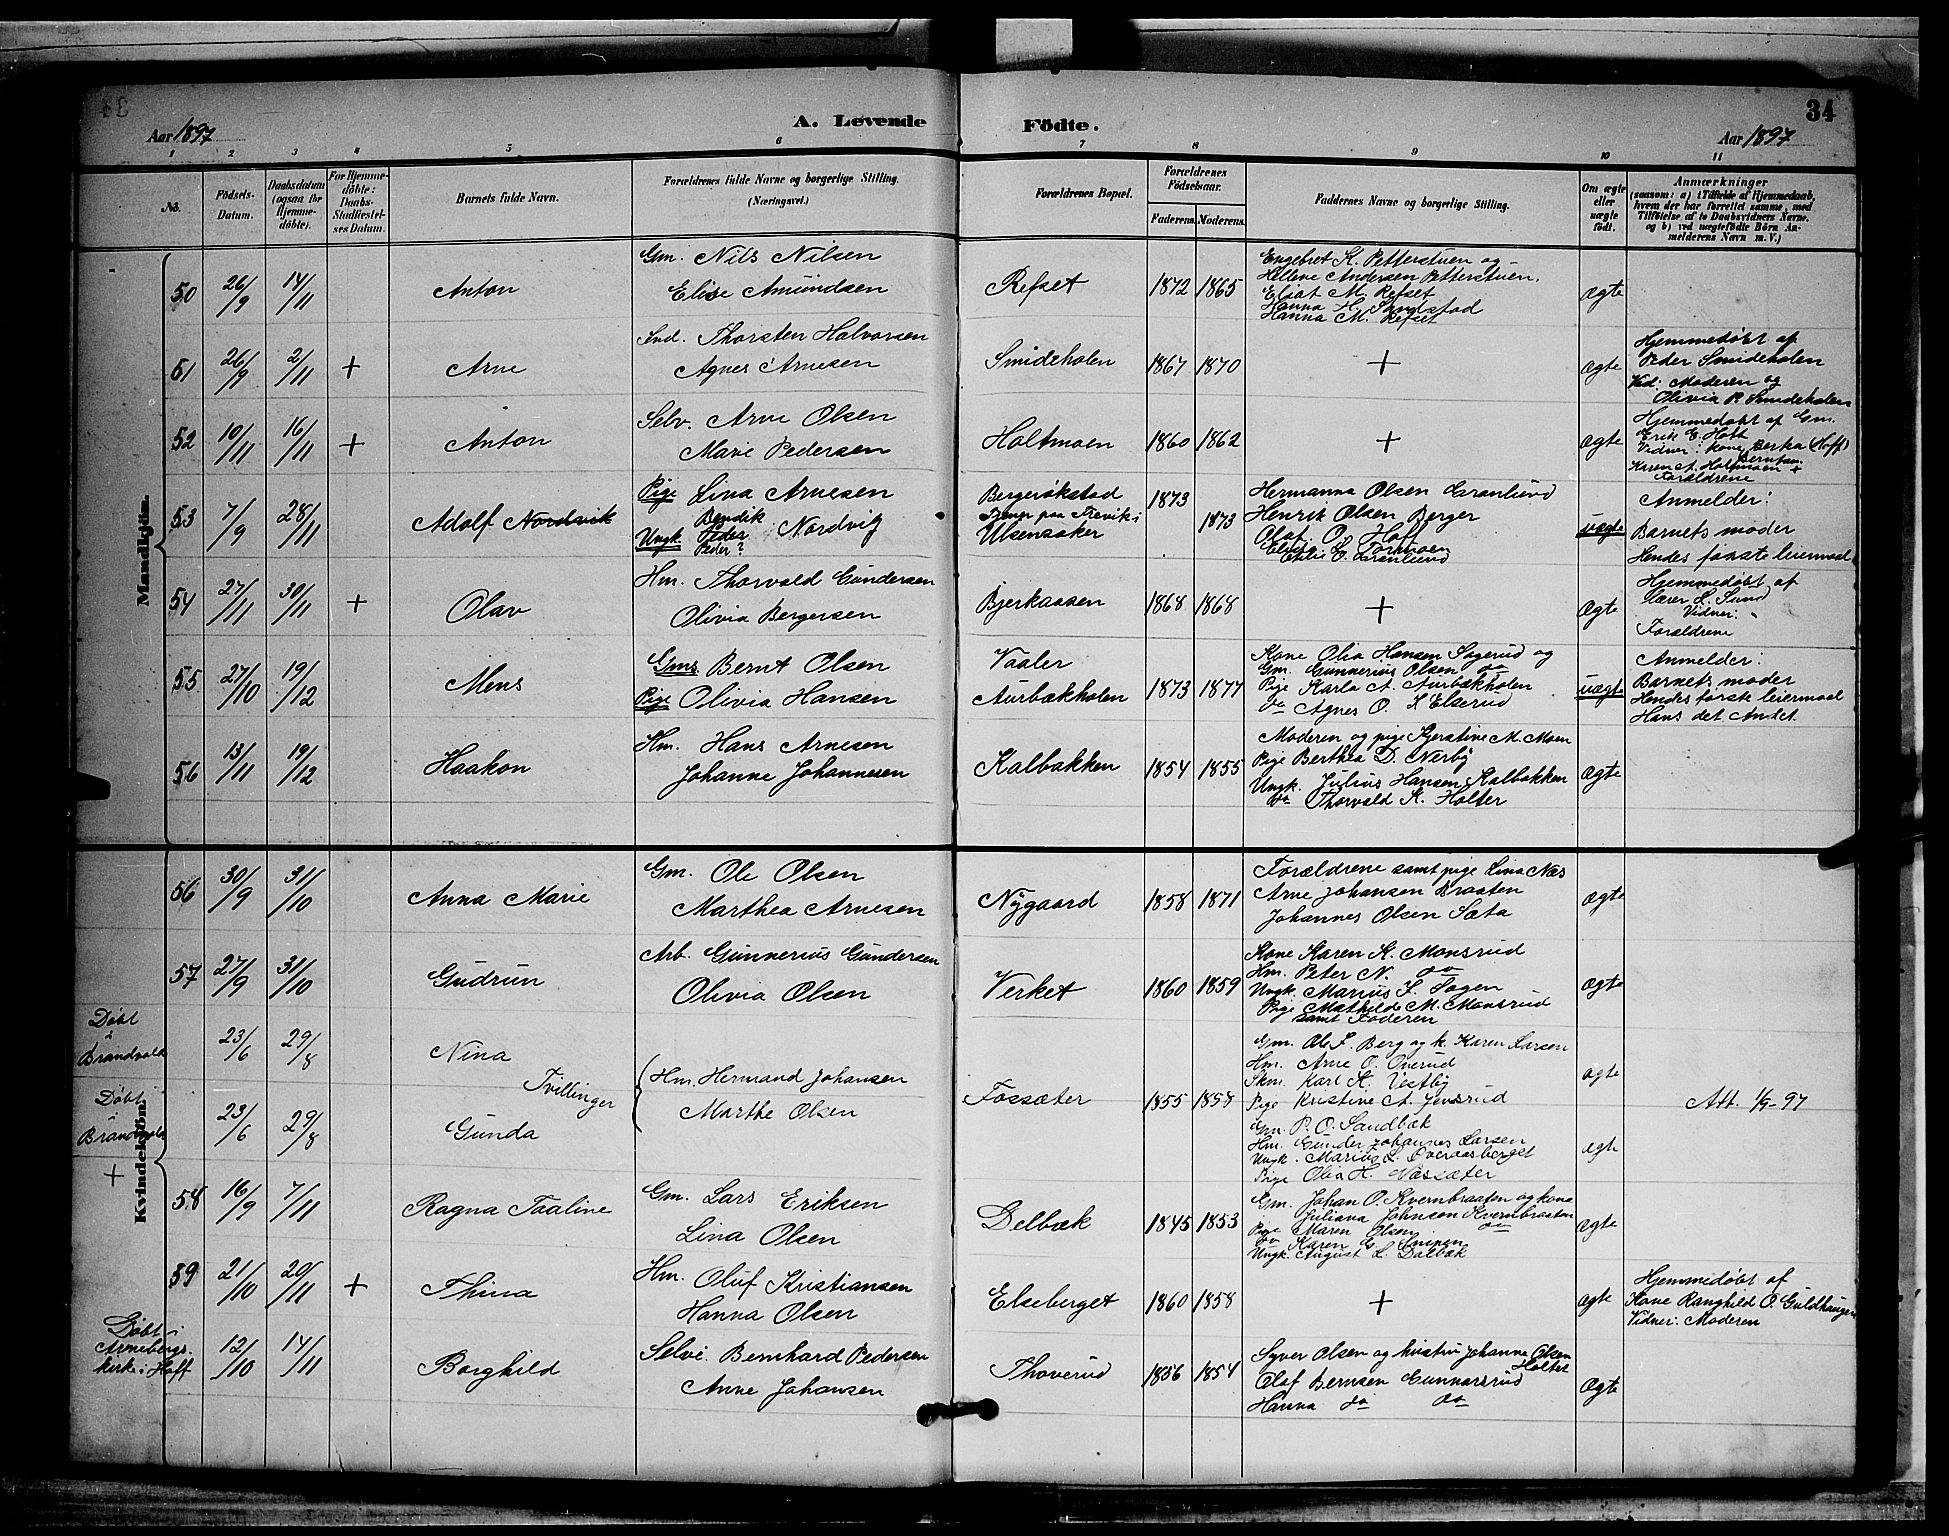 34
A. Levende Födte.
Aar 1897
Aar 1897
1 2 3 4 5 6 7 8 9 10 11
No.
Födsels-Datum.
Daabsdatum (ogsaa for Hjemme-döbte).
For Hjemme-döbte: Daabs-Stadfæstel-ses Datum.
Barnets fulde Navn.
Forældrenes fulde Navne og borgerlige Stilling. (Næringsvei.)
Forældrenes Bopæl.
Forældrenes Födselsaar.
Faderens. Moderens.
Faddernes Navne og borgerlige Stilling.
Om ægte eller uægte födt.
Anmærkninger
(saasom: a) i Tilfælde af Hjemmedaab, hvem der har forrettet samme, med Tilföielse af to Daabsvidners Navne, og b) ved uægtefödte Börn An-melderens Navn m. V.)
Mandkjön.
50 26/9 14/11 Anton
Gm. Nils Nilsen
Elise Amundsen
Refset 1872 1865
Engebret K. Petterstuen og
Hellene Andersen Petterstuen.
M. Refset
Hanna H.
Hanna M. Refset
ægte
51 26/9 2/11 + Arne
Ind. Thorsten Halvorsen
Agnes Arnesen
Smideholen 1867 1870 + ægte
Hjemmedøbt af
Peder Smideholen
Vid: Moderen og
Olivia P. Smideholen
52 10/11 16/11 + Anton
Selv. Arne Olsen
Marie Pedersen
Holtmoen 1860 1862 + ægte
Hjemmedøbt af Gm.
Erik E. Hoff
Vidner: Kone Berthe (Hoff)
Karen A. Holtmoen +
Forældrene
53 7/9 28/11 Adolf Nordvik
Pige Lina Arnesen
Bendik
Ungk. Peder Nordvig
Peder?
Bergerøkstad
Ulsensaker
1873
1873
Hermanna Olsen Granlund
Henrik Olsen Berger
Olaf O. Hoff
uægte
Anmelder:
Barnets moder
Hendes første leiermaal
54 27/11 30/11 + Olav
Hm. Thorvald Gundersen
Olivia Bergersen
Bjerkaasen 1868 1868 + ægte
Hjemmedøbt af
Lærer L. Sund
Vidner:
Forældrene
55 27/10 19/12 Mens
Gms. Bernt Olsen
Pige Olivia Hansen
Vaaler
Aurbækholen 1873 1877
Kone Olia Hansen Sagerud og
Gm. Gunnerius Olsen do
Pige Karla A. Aurbækholen
do Agnes O. Elserud
uægte
Anmelder:
Barnets moder
Hendes første leiermaal
Hans det Andet
56 13/11 19/12 Haakon
Hm. Hans Arnesen
Johanne Johannesen
Kalbakken 1854 1855
Moderen og pige Kjerstine M. Moen
Pige Berthea D. Nerby
Ungk. Julius Hansen Kalbakken
do Thorvald K. Holter
ægte
Kvindekjön.
56 30/9 31/10 Anna Marie
Gm. Ole Olsen
Marthea Arnesen
Nygaard 1858 1871
Forældrene samt pige Lina Næs
Arne Johansen Braaten
Johannes Olsen Sæta
ægte
57 27/9 31/10 Gudrun
Arb. Gunnerius Gundersen
Olivia Olsen
Verket 1860 1859
Kone Karen K. Monsrud
Hm. Peter N. do
Ungk. Marius F. Fagen
Pige Mathilde M. Monsrud
samt Faderen
ægte
Døbt i Brandvold
23/6 29/8 Nina
Tvillinger
Hm. Hermand Johansen
Marthe Olsen
Fossæter 1855 1858
Gm. Ole F. Berg og k. Karen Larsen
Hm. Arne O. Overud
Skm. Karl K. Vestby
Pige Kristine A. Jensrud
ægte
Att. 1/9-97
Døbt i Brandvold
23/6 29/8 Gunda
Gm. P. O. Sandbæk
Hm. Gunder Johannes Larsen
Ungk. Marius L. Overaasberget
Pige Olia H. Næssæter
ægte
+
58 16/9 7/11 Ragna Taaline
Gm. Lars Eriksen
Lina Olsen
Delbæk 1845 1853
Gm. Johan O. Kvernbraaten og kone
Juliana Johnsen Kvernbraaten
Pige Maren Olsen do
do Karen G. Snipen
Ungk. August L. Dalbæk
ægte
59 21/10 20/11 + Thina
Hm. Oluf Kristiansen
Hanna Olsen
Elseberget 1860 1858 + ægte
Hjemmedøbt af
Kone Ranghild O. Guldhaugen
Vidner: Moderen
Døbt i Arneberg-kirke i Hoff
12/10 14/11 Borghild
Selvei. Bernhard Pedersen
Anne Johansen
Thoverud 1856 1854
Syver Olsen og hustru Johanne Olsen Holter
Olaf Bernsen Gunnarsrud
Hanna do do
ægte